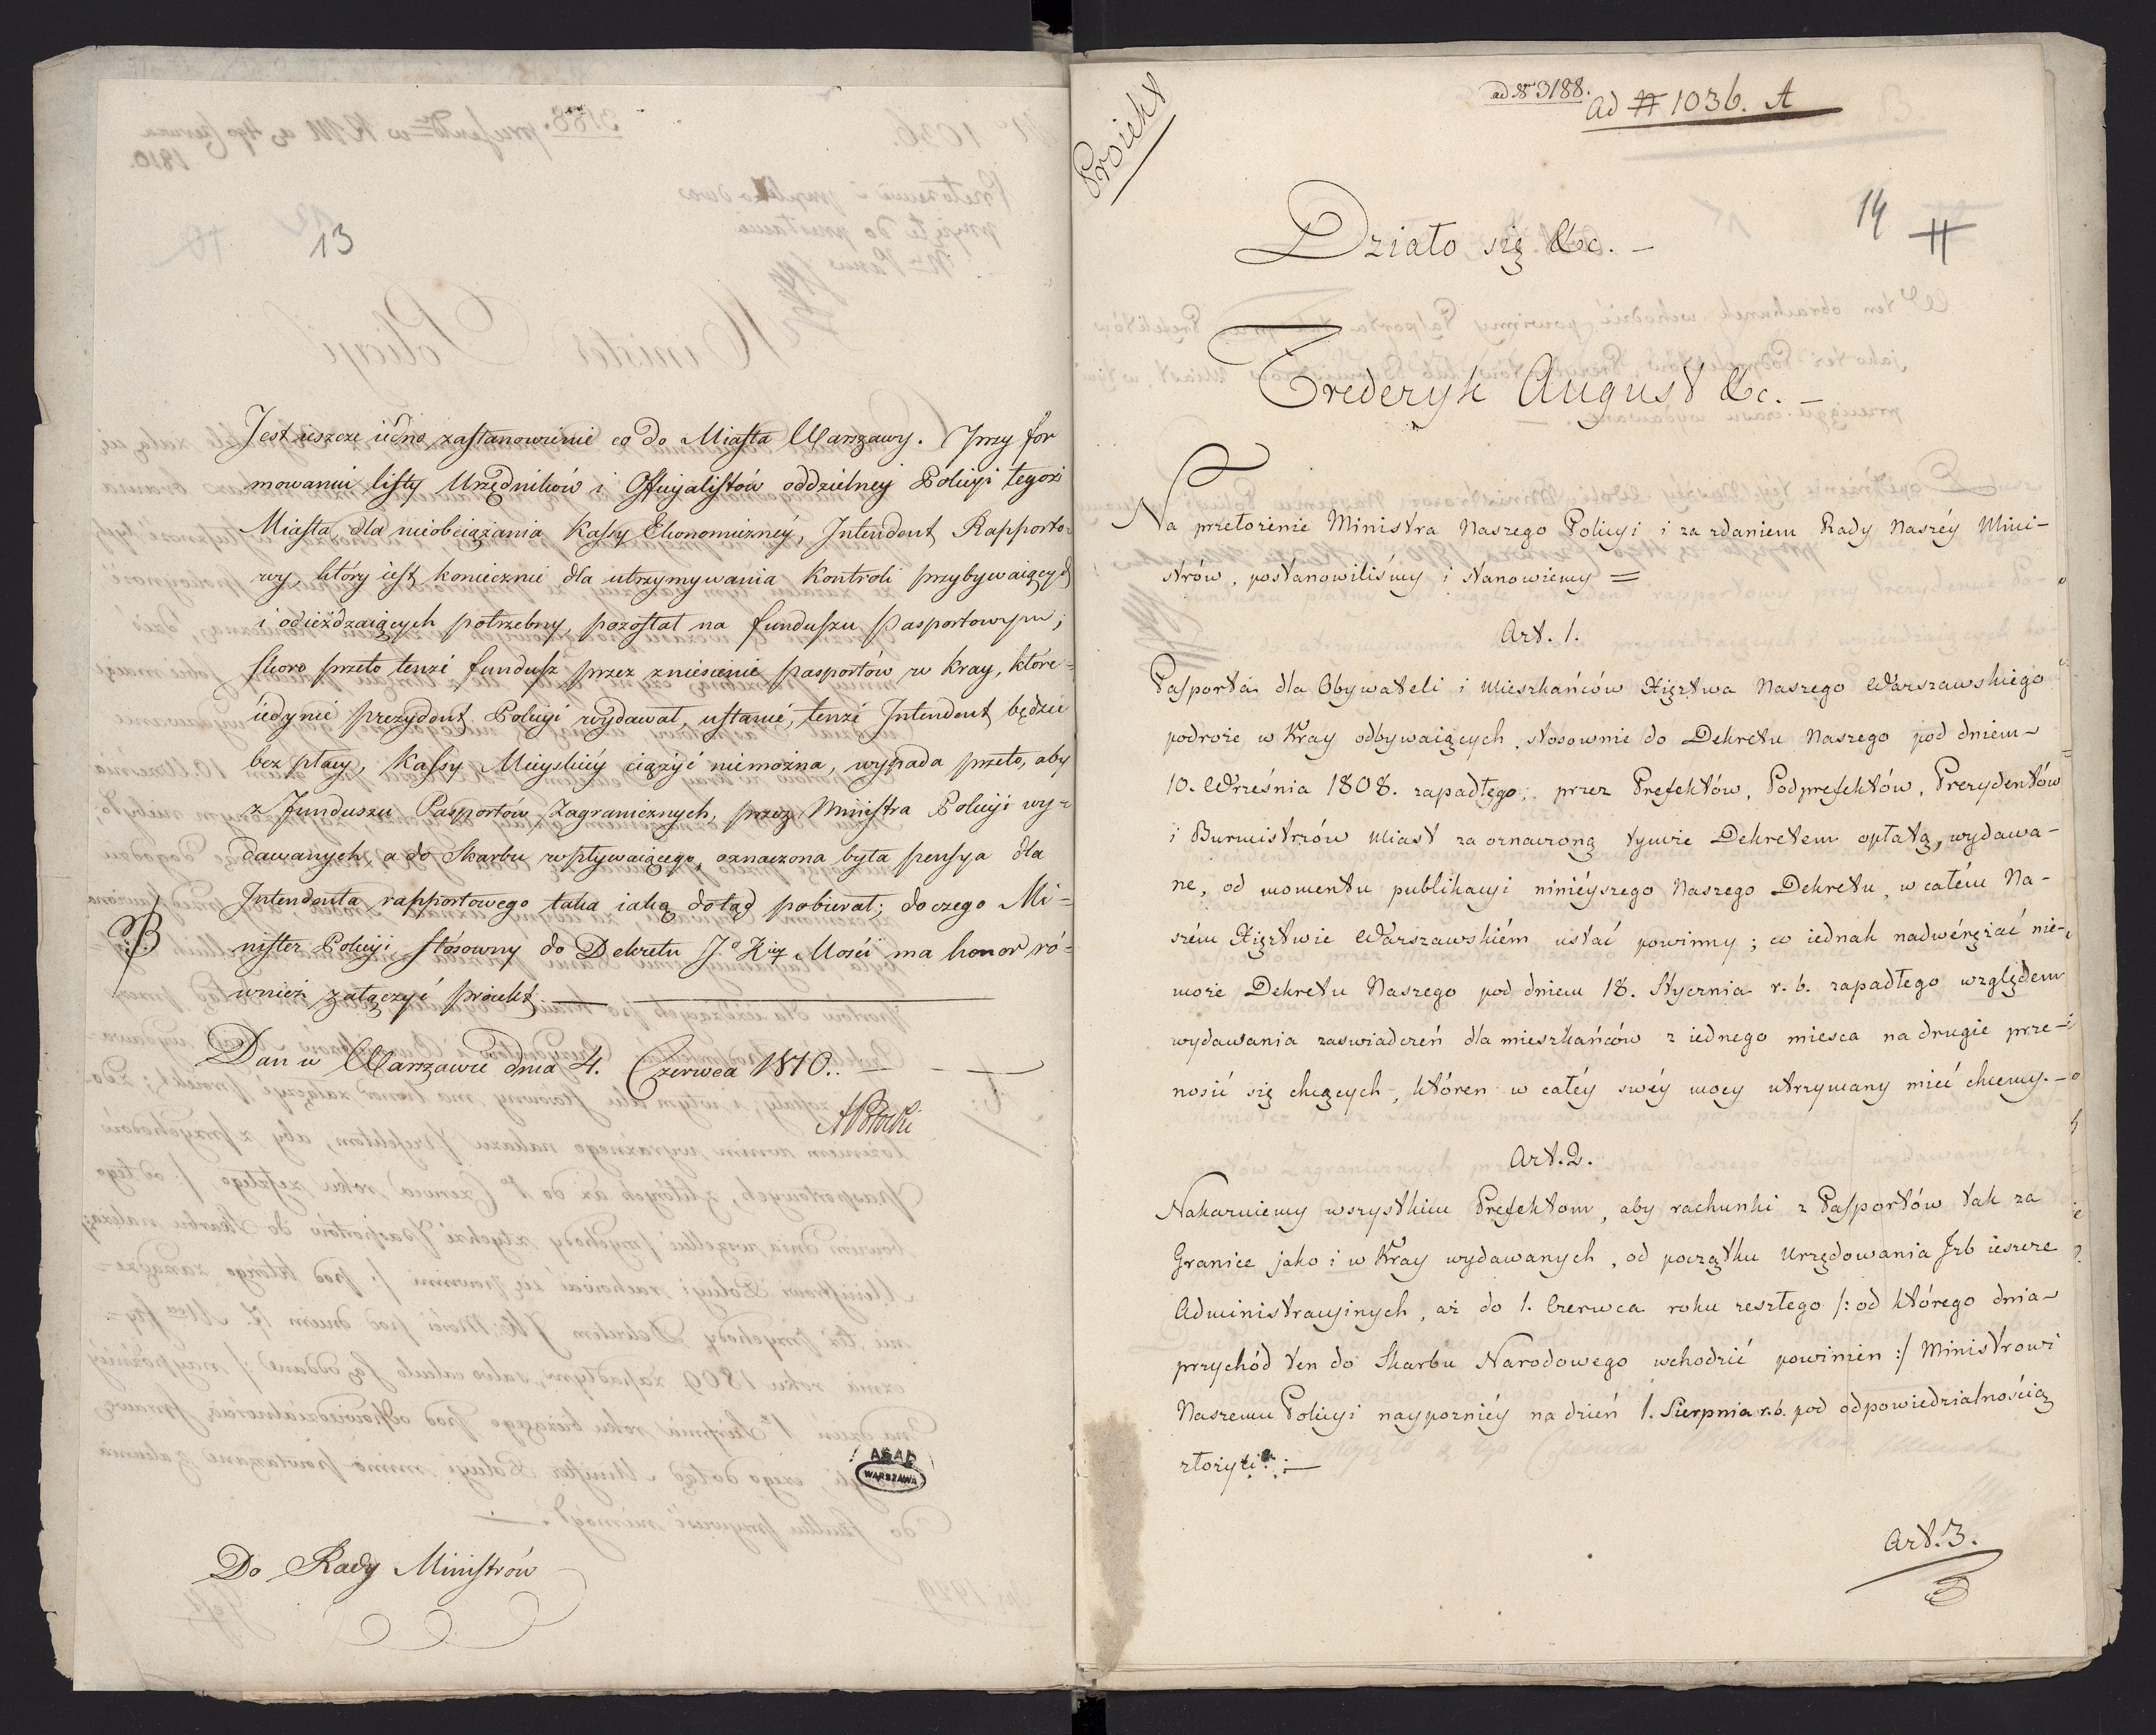 13
Jest ieszcze iedno zastanowienie co do Miasta Warszawy. Przy for
mowaniu listy Urzędników i Officyalistów oddzielney Policyi tegoż
Miasta, dla nieobciążania Kassy Ekonomiczney, Intendent Rapporto-
wy, który iest koniecznie dla utrzymywania Kontroli przybywaiących
i odieżdzaiących potrzebny, pozostał na funduszu Pasportowym;
skoro przeto tenże fundusz przez zniesienie pasportów w kray, które
iedynie prezydent Policyi wydawał, ustanie, tenże Intendent będzie
bez płacy, Kassy Mieyskiéy ciążyć niemożna, wypada przeto, aby
z funduszu Pasportów Zagranicznych, przez Ministra Policyi wy=
dawanych, a do Skarbu wpływaiącego, oznaczona była pensya dla
Intendenta rapportowego taka iaką dotąd pobierał; do czego Mi=
B nister Policyi stósowny do Dekretu Jo Kiey Mości ma honor ró=
wnież załączyć proiekt. —
Dan w Warszawie dnia 4. Czerwca 1810. —
APotocki
AGAD
WARSZAWA
Do Rady Ministrów
Proiekt
ad N 3188.
ad N 1036. A
14
Działo się &c. —
Frederyk August &c. —
Na przełożenie Ministra Naszego Policyi i za zdaniem Rady Naszéy Mini-
strów, postanowiliśmy i stanowiemy =
Art. 1.
Pasporta dla Obywateli i Mieszkańców Xięztwa Naszego Warszawskiego
podroże w Kray odbywaiących, stosownie do Dekretu Naszego pod dniem
10. Września 1808. zapadłego, przez Prefektów, Podprefektów, Prezydentów
i Burmistrzów Miast za oznaczoną tymże Dekretem opłatą, wydawa-
ne, od momentu publikacyi niniéyszego Naszego Dekretu, w całém Na-
szém Xięztwie Warszawskiém ustać powinny; co iednak nadwérężać nie-
może Dekretu Naszego pod dniem 18. Stycznia r. b. zapadłego względem
wydawania zaswiadczeń dla mieszkańców z iednego miesca na drugie prze-
nosić się chcących, któren w całéy swéy mocy utrzymany mieć chcemy. —
Art. 2.
Nakazuiemy wszystkim Prefektom, aby rachunki z Pasportów tak za
Granice jako i w Kray wydawanych, od początku Urzędowania Izb ieszcze
Administracyinych, aż do 1. Czerwca roku zeszłego /: od którego dnia
przychód ten do Skarbu Narodowego wchodzić powinien :/ Ministrowi
Naszemu Policyi naypozniéy na dzień 1. Sierpnia r. b. pod odpowiedzialnością
złożyli. —
Art. 3.